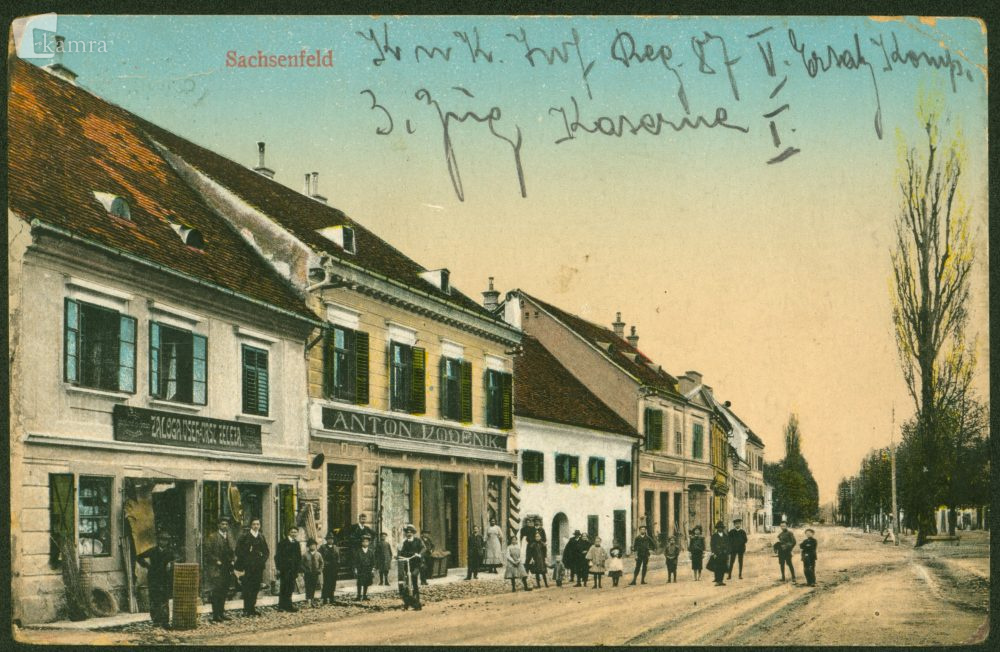 kamra
Sachsenfeld
K u K. Inf Reg. 87 V. Ersatz Komp.
3. Zug Kaserne I.
ZALOGA VSEH VRST
ANTON VODENIK